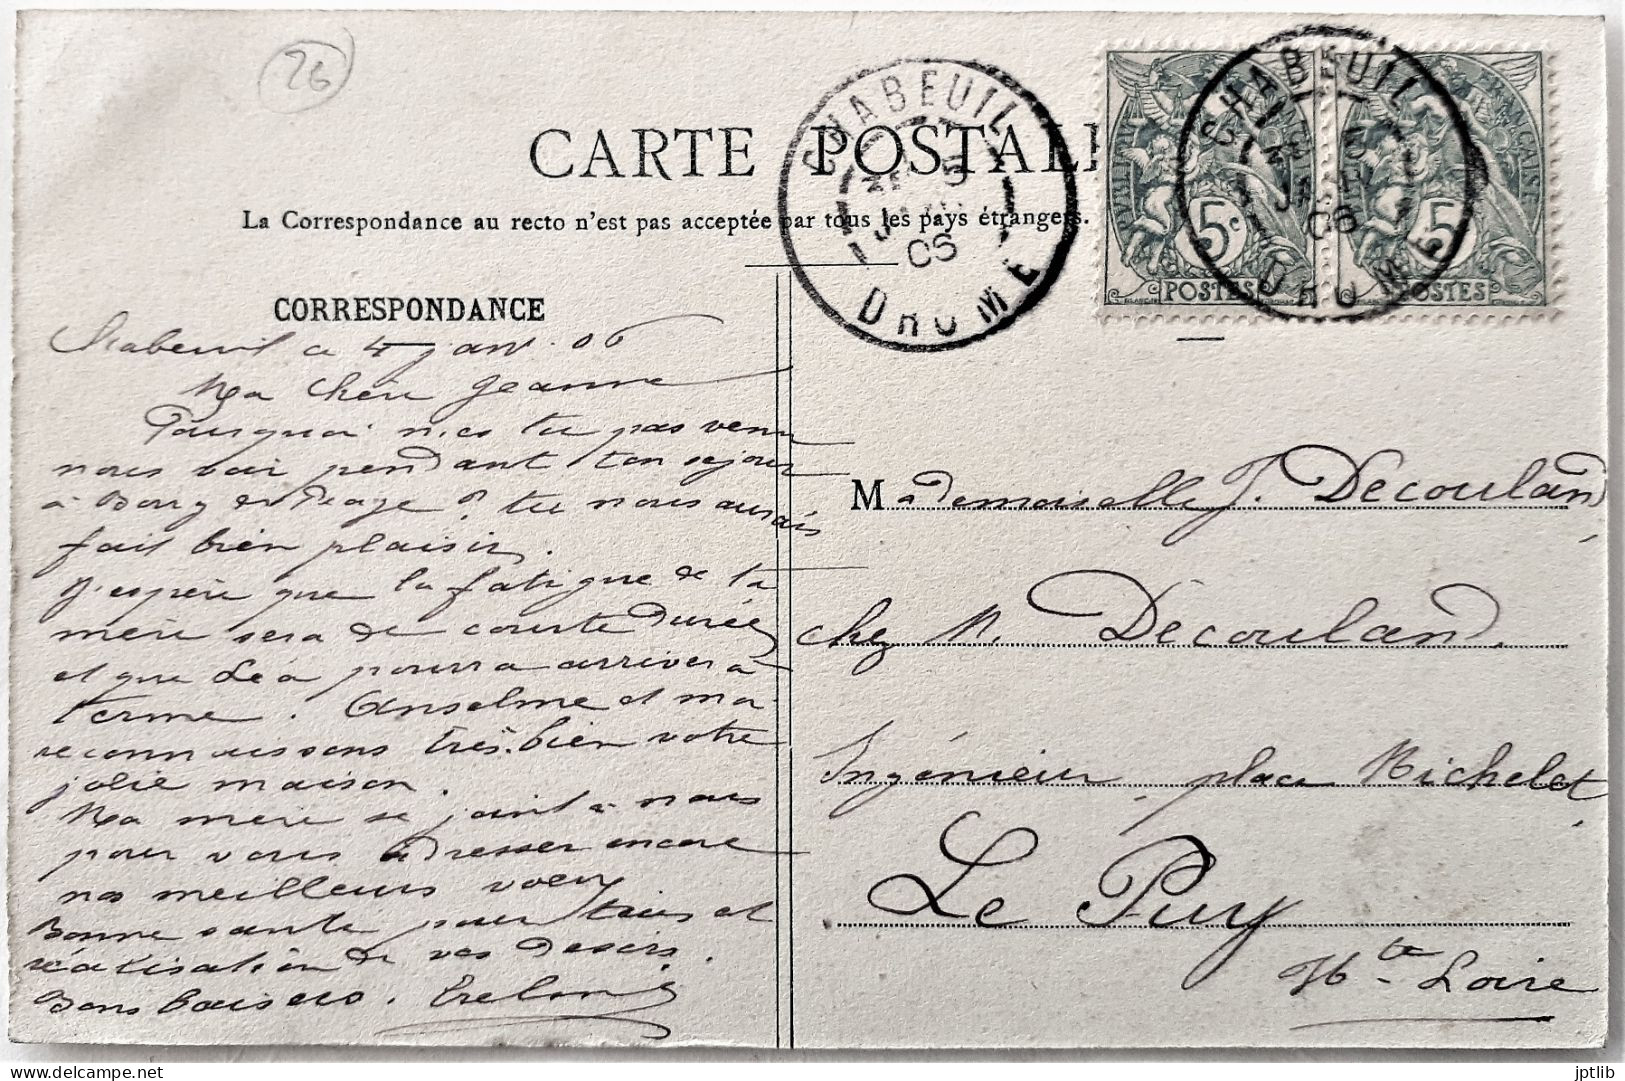 26
CARTE POSTALE
La Correspondance au recto n'est pas acceptée par tous les pays étrangers.
CORRESPONDANCE
CHABEUIL
5
06
DROME
CHABEUIL
06
DROME
FRANÇAISE
5c
5
POSTES
POSTES
Chabeuil a 4 janv. 06
Ma Chère Jeanne
Pourquoi n'es tu pas venu
nous voir pendant ton sejour
à Bourg de Péage ? tu nous aurais
fait bien plaisir.
J'espère que la fatigue de ta
mère sera de courte durée
et que Léa pourra arriver à
terme. Anselme et moi
reconnaissons très bien votre
jolie maison.
Ma mère se joint à nous
pour vous adresser encore
nos meilleurs voeux
Bonne santé pour tous et
réalisation de vos desirs.
Bons baisers.
Mademoiselle J. Decouland,
chez M. Découland.
Ingénieur, place Michelet,
Le Puy
Hte Loire
jptlib
delcampe.net